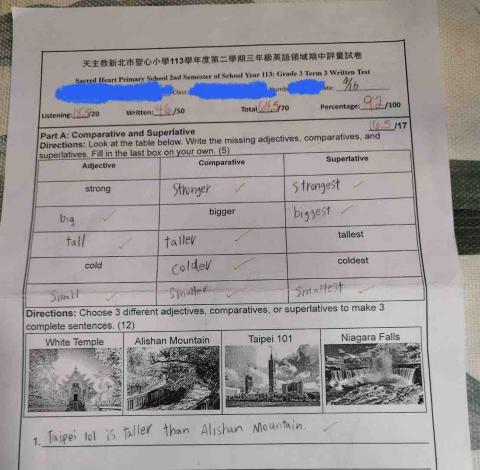 天主教新北市聖心小學113學年度第二學期三年級英語領域期中評量試卷
Sacred Heart Primary School 2nd Semester of School Year 113: Grade 3 Term 3 Written Test
Class:
Listening: 18.5/20 Written: 46/50 Total 64.5/70 Percentage: 92/100
16.5/17
Part A: Comparative and Superlative
Directions: Look at the table below. Write the missing adjectives, comparatives, and
superlatives. Fill in the last box on your own. (5)
Adjective Comparative Superlative
strong Stronger strongest
big bigger biggest
tall taller tallest
cold colder coldest
Small Smaller Smallest
Directions: Choose 3 different adjectives, comparatives, or superlatives to make 3
complete sentences. (12)
White Temple Alishan Mountain Taipei 101 Niagara Falls
1. Taipei 101 is taller than Alishan Mountain.